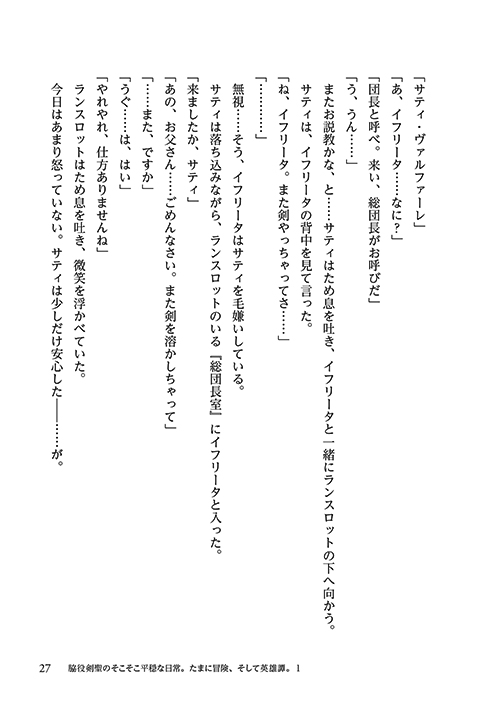 「サティ・ヴァルファーレ」
「あ、イフリータ……なに？」
「団長と呼べ。来い、総団長がお呼びだ」
「う、うん……」
またお説教かな、と……サティはため息を吐き、イフリータと一緒にランスロットの下へ向かう。
サティは、イフリータの背中を見て言った。
「ね、イフリータ。また剣やっちゃってさ……」
「…………」
無視……そう、イフリータはサティを毛嫌いしている。
サティは落ち込みながら、ランスロットのいる『総団長室』にイフリータと入った。
「来ましたか、サティ」
「あの、お父さん……ごめんなさい。また剣を溶かしちゃって」
「……また、ですか」
「うぐ……は、はい」
「やれやれ、仕方ありませんね」
ランスロットはため息を吐き、微笑を浮かべていた。
今日はあまり怒っていない。サティは少しだけ安心した――……が。
27　脇役剣聖のそこそこ平穏な日常。たまに冒険、そして英雄譚。1